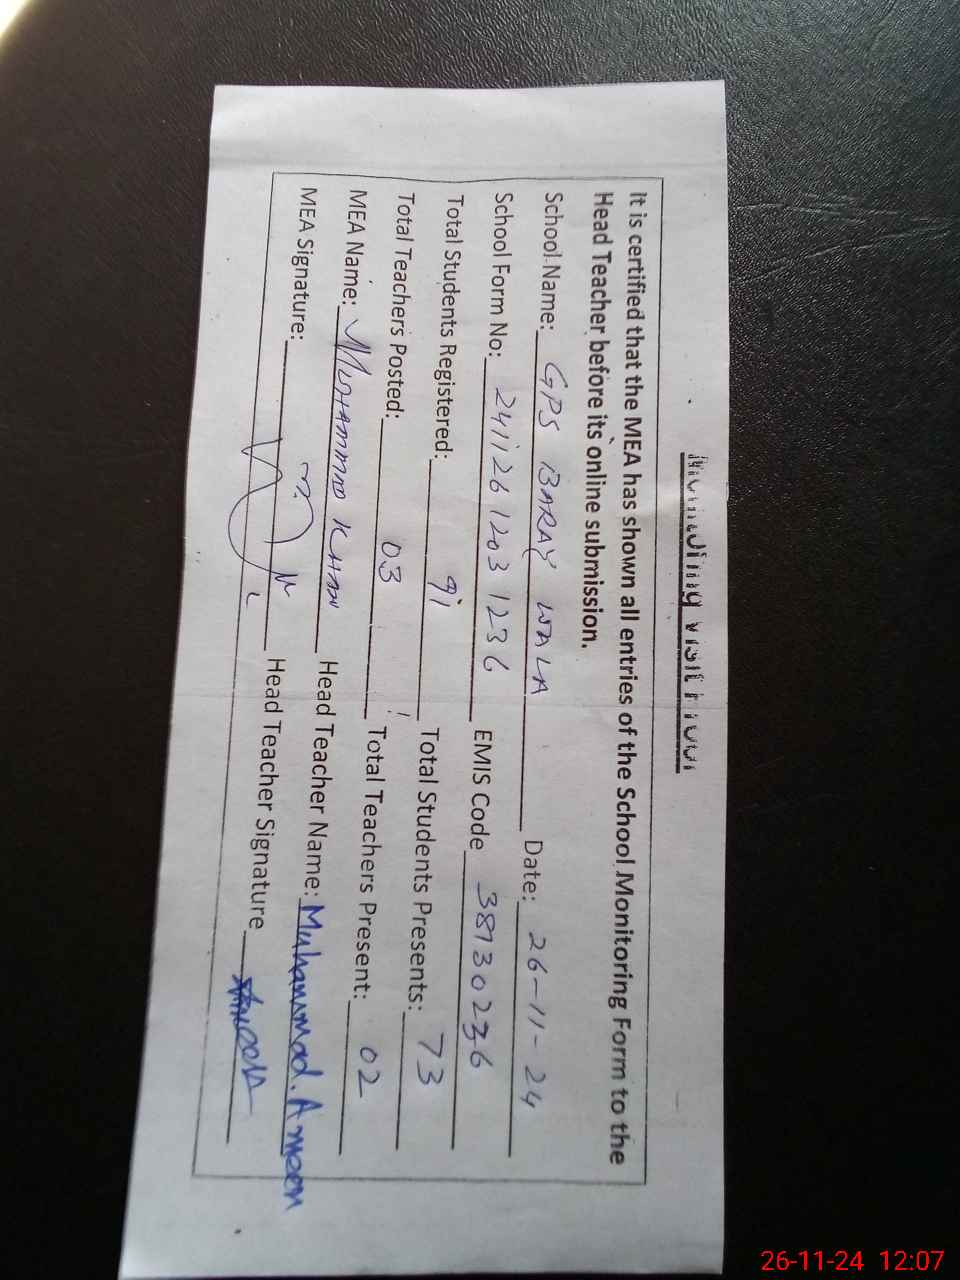 Monitoring Visit Proof
It is certified that the MEA has shown all entries of the School Monitoring Form to the
Head Teacher before its online submission.
School Name: GPS BARAY WALA Date: 26-11-24
School Form No: 241126 1203 1236 EMIS Code 38130236
Total Students Registered: 91 Total Students Presents: 73
Total Teachers Posted: 03 Total Teachers Present: 02
MEA Name: MUHAMMAD KHAN Head Teacher Name: Muhammad. Ameen
MEA Signature: Head Teacher Signature Ameen
26-11-24 12:07